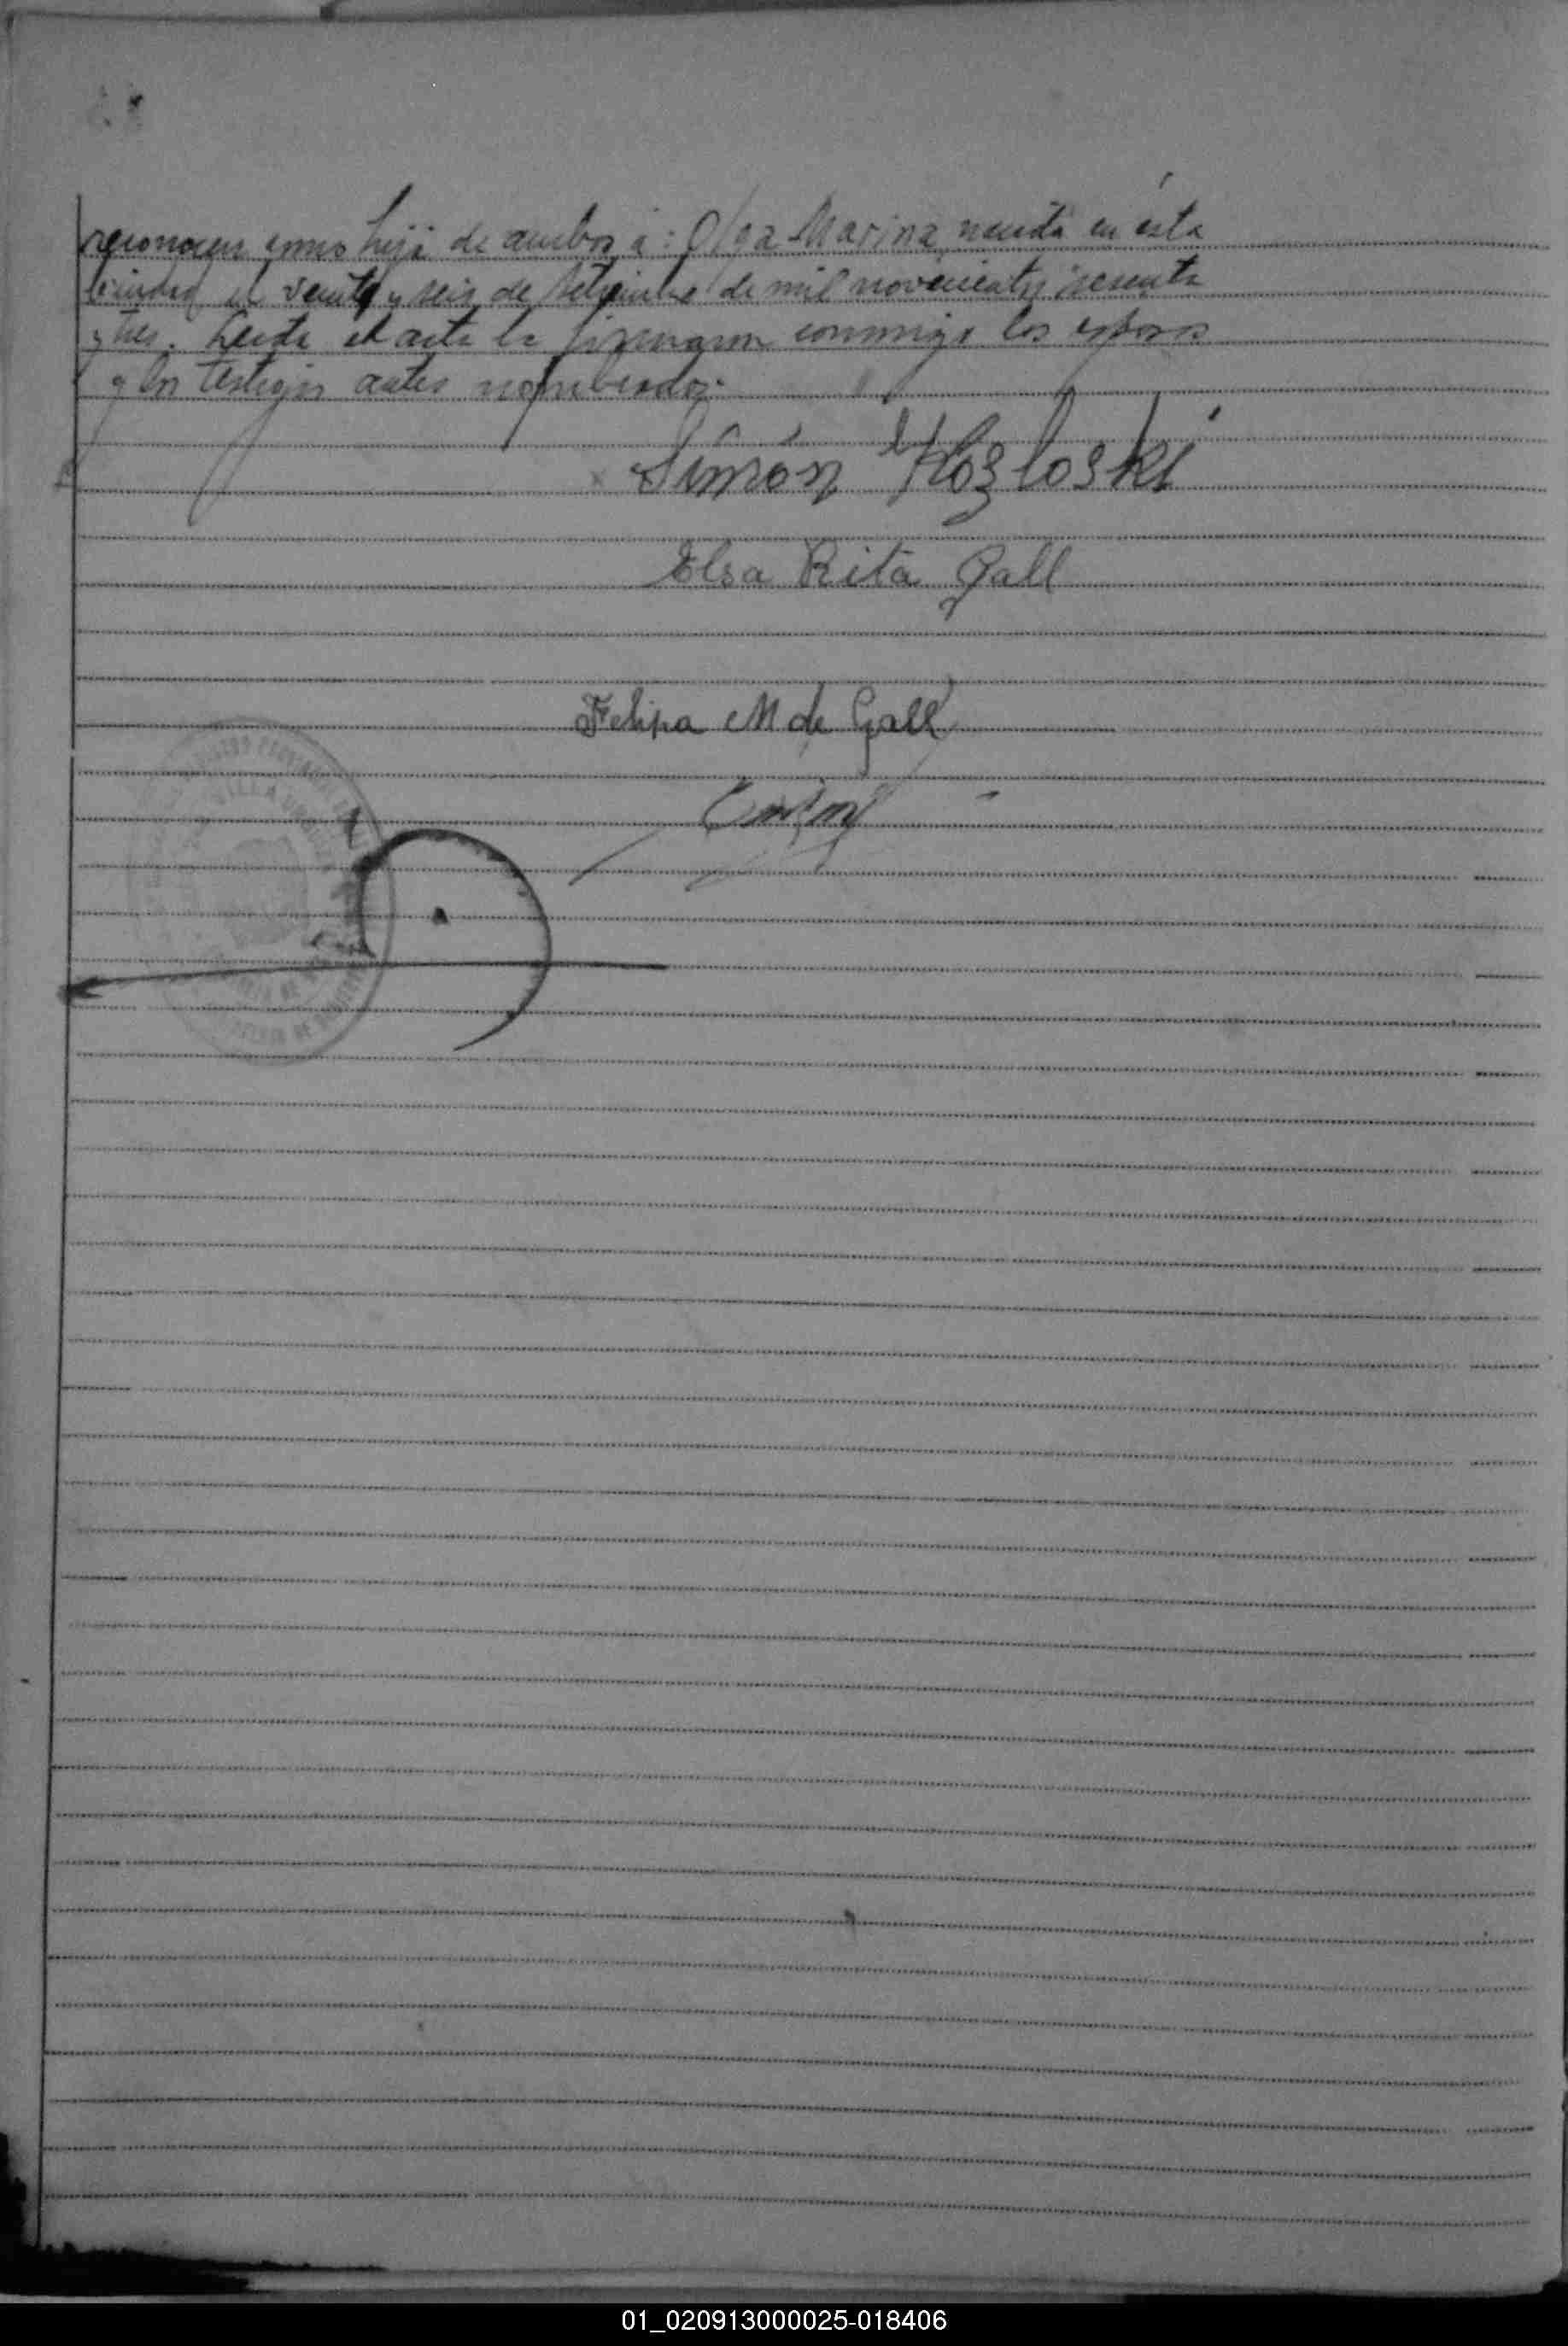 reconocen como hija de ambos a: Olga Marina nacida en ésta
Ciudad el veinte y seis de setiembre de mil novecientos sesenta
y tres. Leida el acta la firmaron conmigo los esposos
y los testigos antes nombrados.
Simón Kozloski
Elsa Rita Gall
Felipa M de Gall
VILLA
01_020913000025-018406